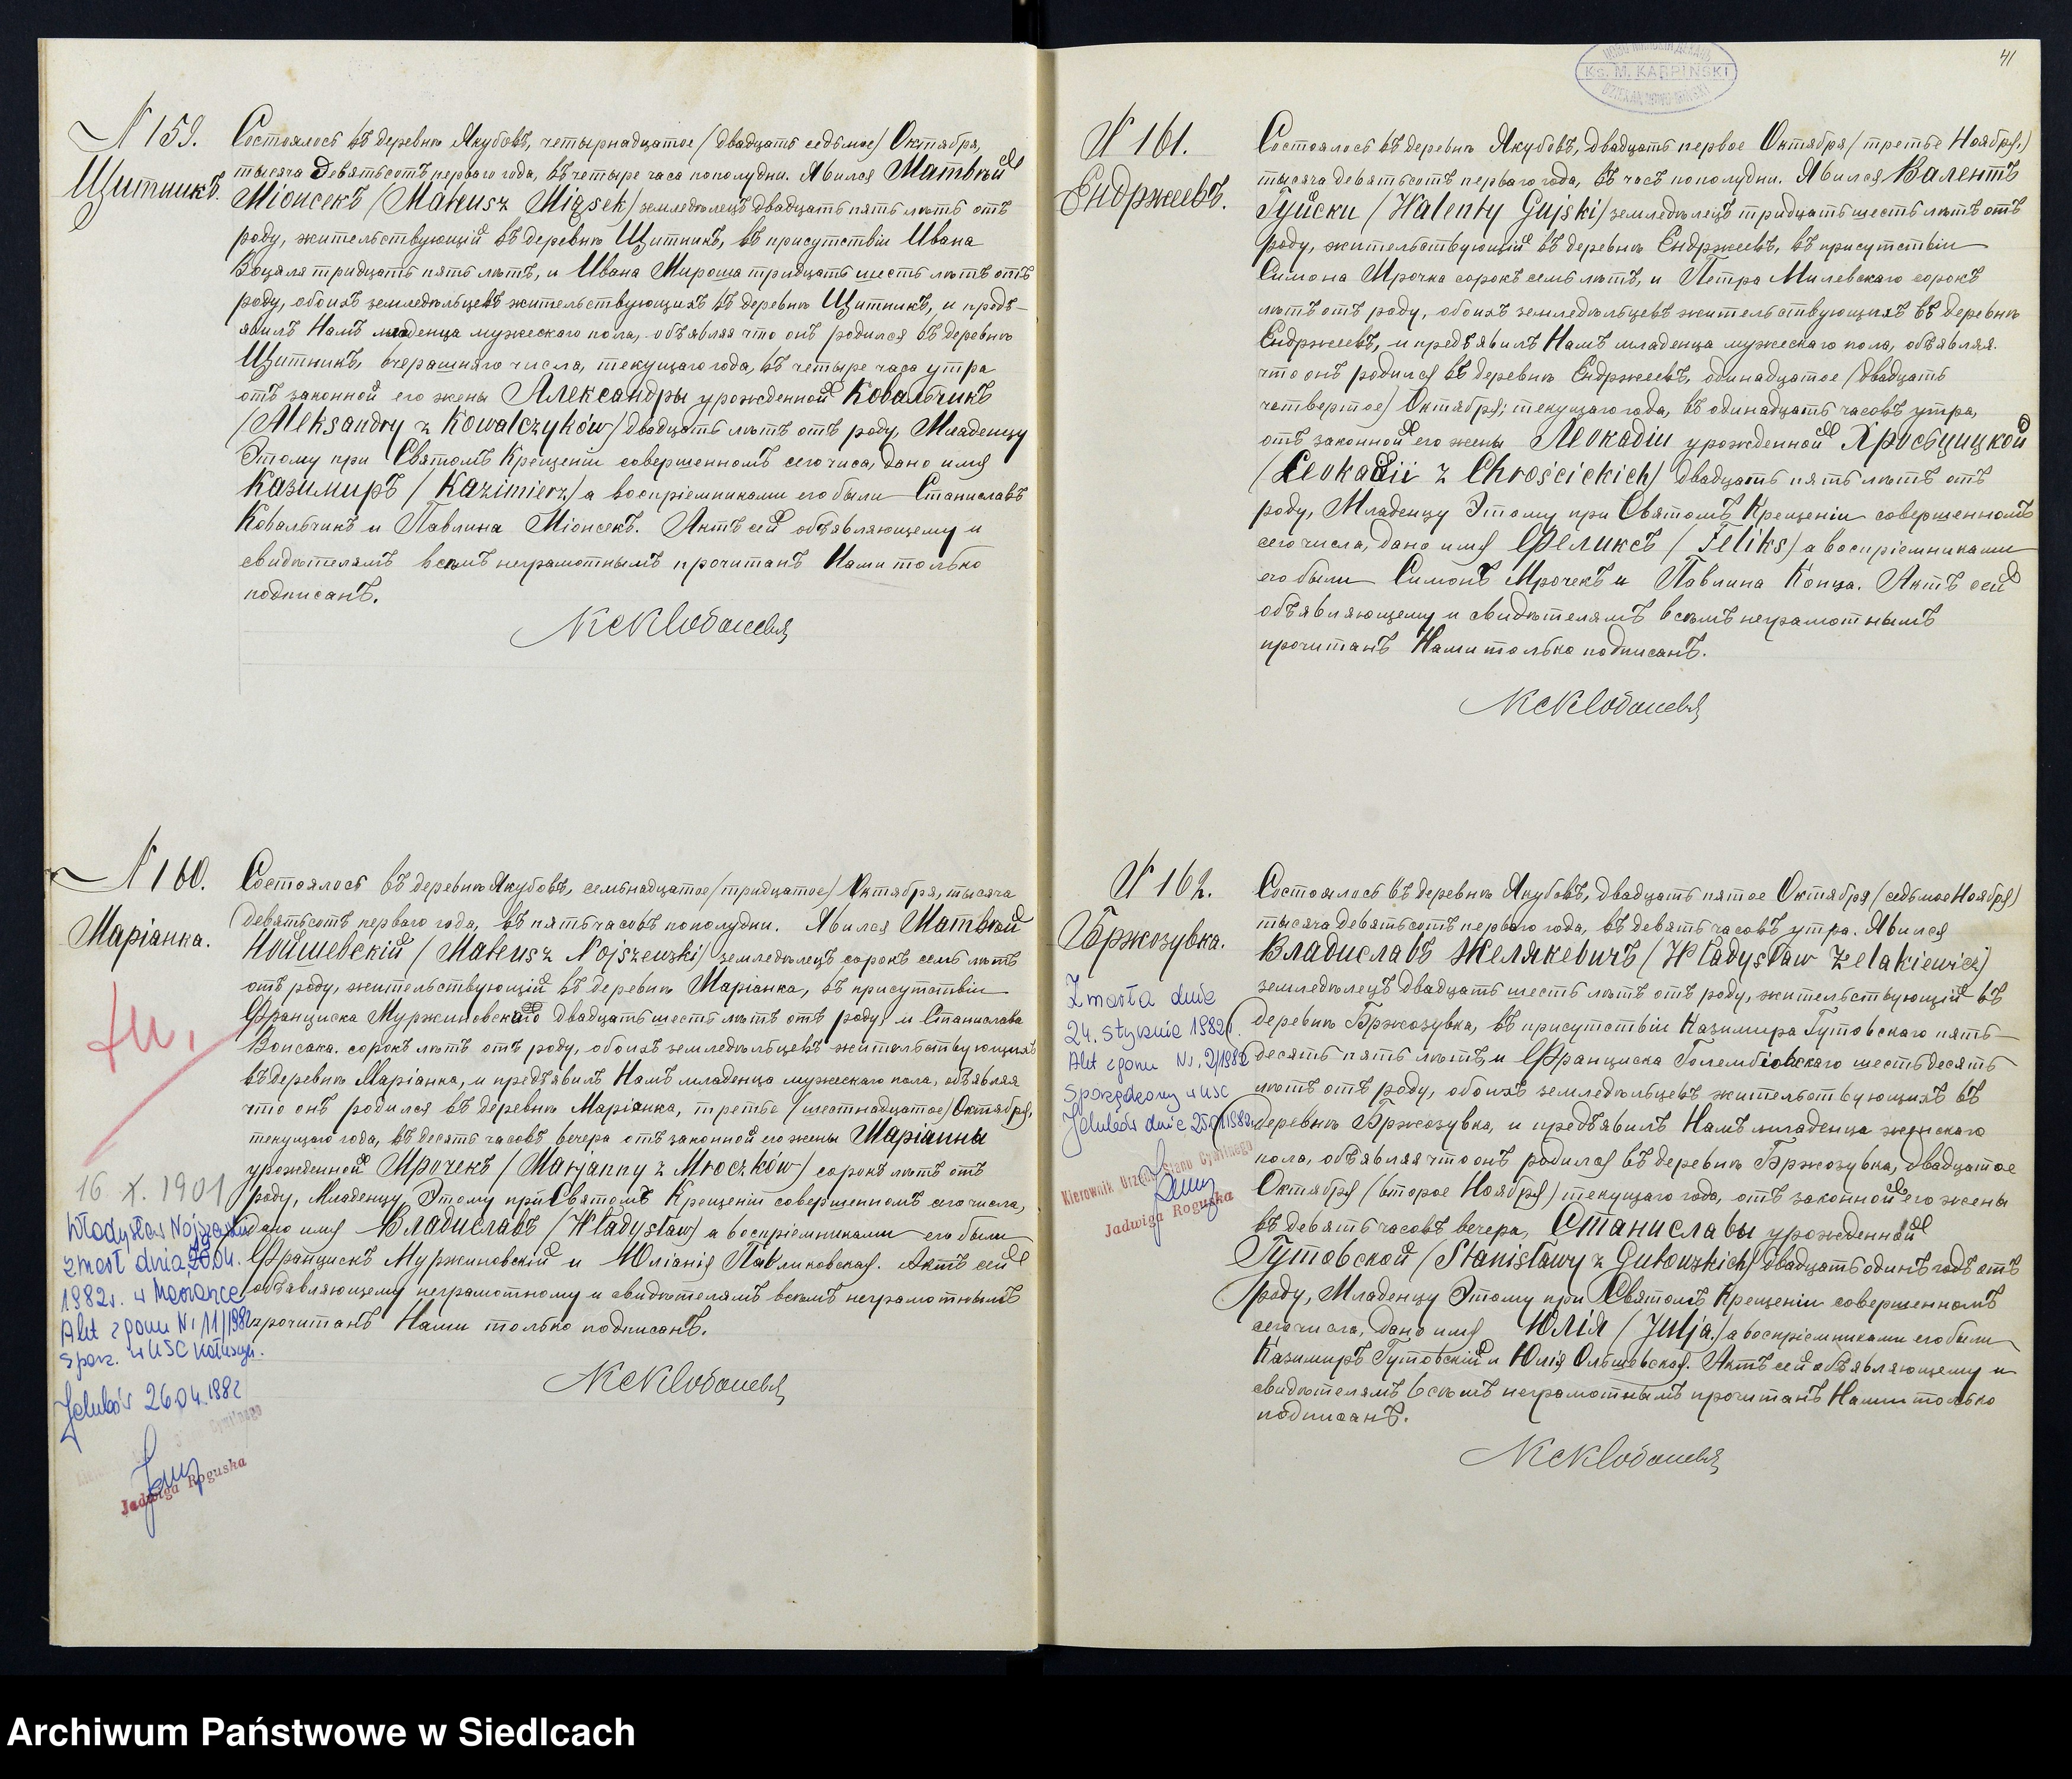 N 159.
Щитникъ.
Состоялось въ деревнѣ Якубовѣ, четырнадцатое (двадцать седьмое) Октября,
тысяча девятьсотъ перваго года, въ четыре часа пополудни. Явился Матвѣй
Міонсекъ (Mateusz Miąsek) земледѣлецъ двадцать пять лѣтъ отъ
роду, жительствующій въ деревнѣ Щитникъ, въ присутствіи Ивана
тридцать пять лѣтъ, и Ивана Мироша тридцать шесть лѣтъ отъ
роду, обоихъ земледѣльцевъ жительствующихъ въ деревнѣ Щитникъ, и предъ-
явилъ Намъ младенца мужескаго пола, объявляя что онъ родился въ деревнѣ
Щитникъ, вчерашняго числа, текущаго года, въ четыре часа утра
отъ законной его жены Александры урожденной Ковальчикъ
(Aleksandry z Kowalczyków) двадцать лѣтъ отъ роду, Младенцу
Этому при Святомъ Крещеніи совершенномъ сего числа, дано имя
Казимиръ (Kazimierz) а воспріемниками его были Станиславъ
Ковальчикъ и Павлина Міонсекъ. Актъ сей объявляющему и
свидѣтелямъ всѣмъ неграмотнымъ прочитанъ Нами только
подписанъ.
N 160.
Маріанка.
Состоялось въ деревнѣ Якубовѣ, семьнадцатое (тридцатое) Октября, тысяча
девятьсотъ перваго года, въ пять часовъ пополудни. Явился Матвѣй
Нойшевскій (Mateusz Nojszewski) земледѣлецъ сорокъ семь лѣтъ
отъ роду, жительствующій въ деревнѣ Маріанка, въ присутствіи
Франциска Муржиновскаго двадцать шесть лѣтъ отъ роду и Станислава
Вонсака сорокъ лѣтъ отъ роду, обоихъ земледѣльцевъ жительствующихъ
въ деревнѣ Маріанка, и предъявилъ Намъ младенца мужескаго пола, объявляя
что онъ родился въ деревнѣ Маріанка, третье (шестнадцатое) Октября,
текущаго года, въ десять часовъ вечера отъ законной его жены Маріанны
урожденной Мрочекъ (Marjanny z Mroczków) сорокъ лѣтъ отъ
роду, Младенцу Этому при Святомъ Крещеніи совершенномъ сего числа,
дано имя Владиславъ (Władysław) а воспріемниками его были
Францискъ Муржиновскій и Юліанія Павликовская. Актъ сей
объявляющему неграмотному и свидѣтелямъ всѣмъ неграмотнымъ
прочитанъ Нами только подписанъ.
16 X. 1901
Władysław Nojszewski
zmarł dnia
1982r. w Mariance
Akt zgonu Nr 11/1982
sporz. w USC Kałuszyn.
Jakubów 26.04.1982
Jadwiga Roguska
41
Ks. M. KARPIŃSKI
N 161.
Ендржеевъ.
Состоялось въ деревнѣ Якубовѣ, двадцать первое Октября (третье Ноября)
тысяча девятьсотъ перваго года, въ часъ пополудни. Явился Валентъ
Гуйски (Walenty Gujski) земледѣлецъ тридцать шесть лѣтъ отъ
роду, жительствующій въ деревнѣ Ендржеевъ, въ присутствіи
Симона Мрочка сорокъ семь лѣтъ, и Петра Милевскаго сорокъ
лѣтъ отъ роду, обоихъ земледѣльцевъ жительствующихъ въ деревнѣ
Ендржеевъ, и предъявилъ Намъ младенца мужескаго пола, объявляя
что онъ родился въ деревнѣ Ендржеевъ, одинадцатое (двадцать
четвертое) Октября, текущаго года, въ одинадцать часовъ утра,
отъ законной его жены Леокадіи урожденной Хросьцицкой
(Leokadii z Chrościckich) двадцать пять лѣтъ отъ
роду, Младенцу Этому при Святомъ Крещеніи совершенномъ
сего числа, дано имя Феликсъ (Feliks) а воспріемниками
его были Симонъ Мрочекъ и Павлина Конца. Актъ сей
объявляющему и свидѣтелямъ всѣмъ неграмотнымъ
прочитанъ Нами только подписанъ.
N 162.
Бржозувка.
Состоялось въ деревнѣ Якубовѣ, двадцать пятое Октября (седьмое Ноября)
тысяча девятьсотъ перваго года, въ девять часовъ утра. Явился
Владиславъ Желякевичъ (Władysław Żelakiewicz)
земледѣлецъ двадцать шесть лѣтъ отъ роду, жительствующій въ
деревнѣ Бржозувка, въ присутствіи Казимира Гутовскаго пять-
десять пять лѣтъ, и Франциска Голембіовскаго шестьдесять
лѣтъ отъ роду, обоихъ земледѣльцевъ жительствующихъ въ
деревнѣ Бржозувка, и предъявилъ Намъ младенца женскаго
пола, объявляя что онъ родился въ деревнѣ Бржозувка, двадцатое
Октября (второе Ноября) текущаго года, отъ законной его жены
въ девять часовъ вечера, Станиславы урожденной
Гутовской (Stanisławy z Gutowskich) двадцать одинъ годъ отъ
роду, Младенцу Этому при Святомъ Крещеніи совершенномъ
сего числа, дано имя Юлія (Julja) а воспріемниками его были
Казимиръ Гутовскій и Юлія Ольшевская. Актъ сей объявляющему и
свидѣтелямъ всѣмъ неграмотнымъ прочитанъ Нами только
подписанъ.
Zmarła dnia
24. stycznia 1982r.
Akt zgonu Nr. 2/1982
Sporządzony w USC
Jakubów dnia
Kierownik Urzędu Stanu Cywilnego
Jadwiga Roguska
Archiwum Państwowe w Siedlcach